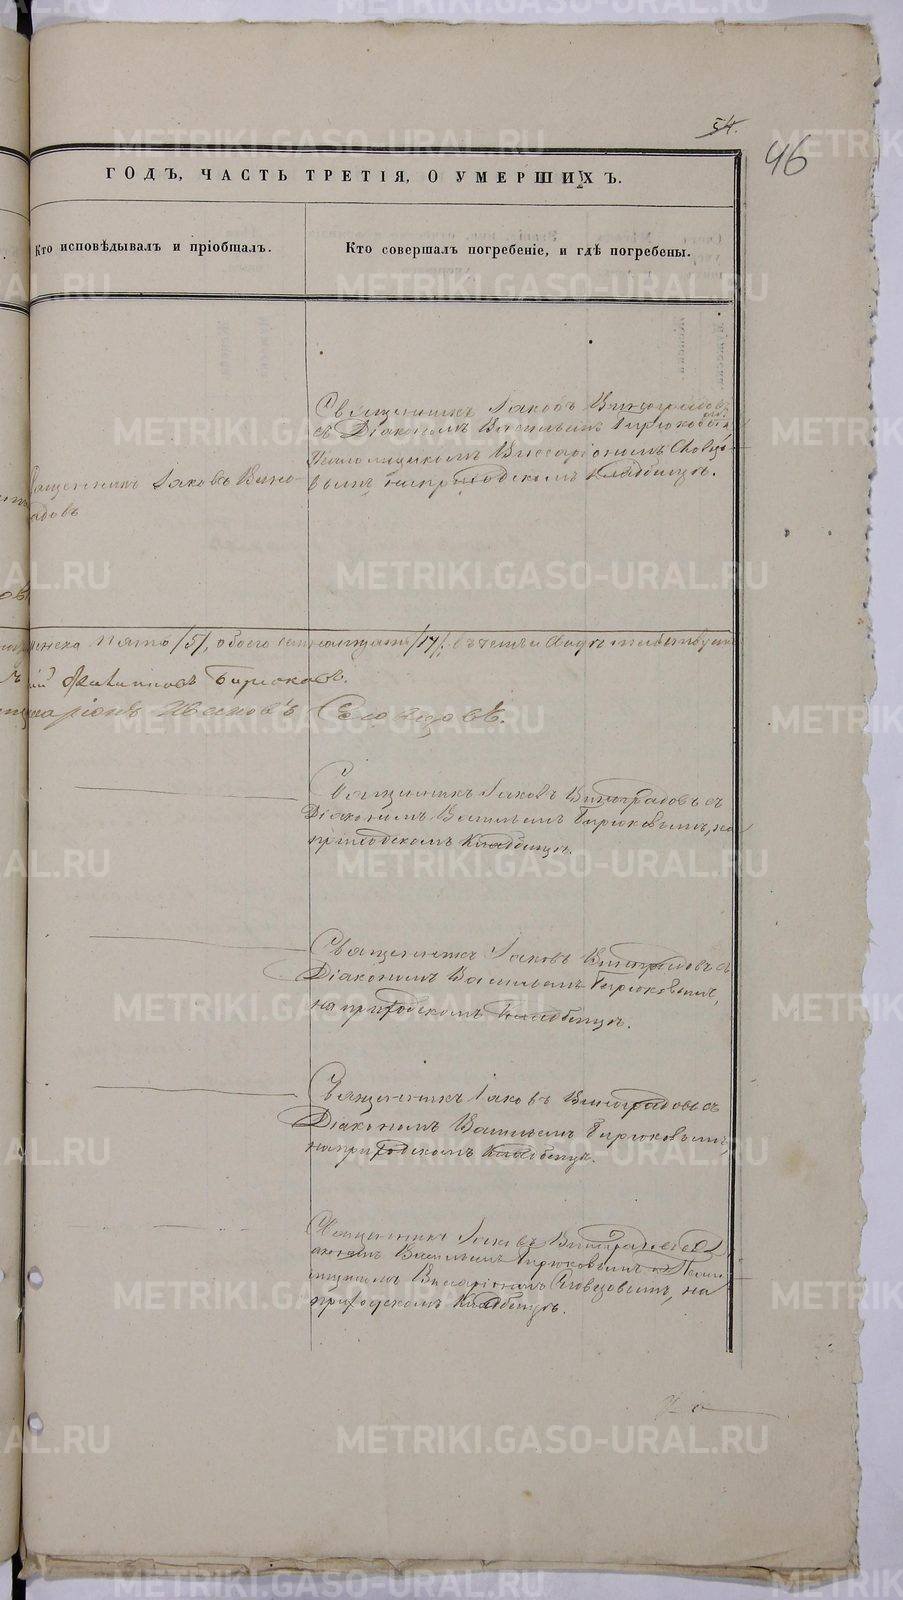 54.
46
ГОДЪ, ЧАСТЬ ТРЕТІЯ, О УМЕРШИХЪ.
Кто исповѣдывалъ и пріобщалъ.
Кто совершалъ погребеніе, и гдѣ погребены.
Священникъ Іаковъ Виноградовъ
съ Діакономъ Василіемъ Бирюковымъ и
Псаломщикомъ Виссаріономъ Словцо-
вымъ, на приходскомъ кладбищѣ.
Священникъ Іаковъ Вино-
градовъ
женска пято /5/, обоего /17/,
Бирюковъ.
Ивановъ Словцовъ.
Священникъ Іаковъ Виноградовъ съ
Діакономъ Василіемъ Бирюковымъ, на
приходскомъ Кладбищѣ.
Священникъ Іаковъ Виноградовъ съ
Діакономъ Василіемъ Бирюковымъ,
на приходскомъ Кладбищѣ.
Священникъ Іаковъ Виноградовъ съ
Діакономъ Василіемъ Бирюковымъ,
на приходскомъ Кладбищѣ.
Священникъ Іаковъ Виноградовъ съ Ді-
акономъ Василіемъ Бирюковымъ и Псало-
мщикомъ Виссаріономъ Словцовымъ, на
приходскомъ Кладбищѣ.
METRIKI.GASO-URAL.RU